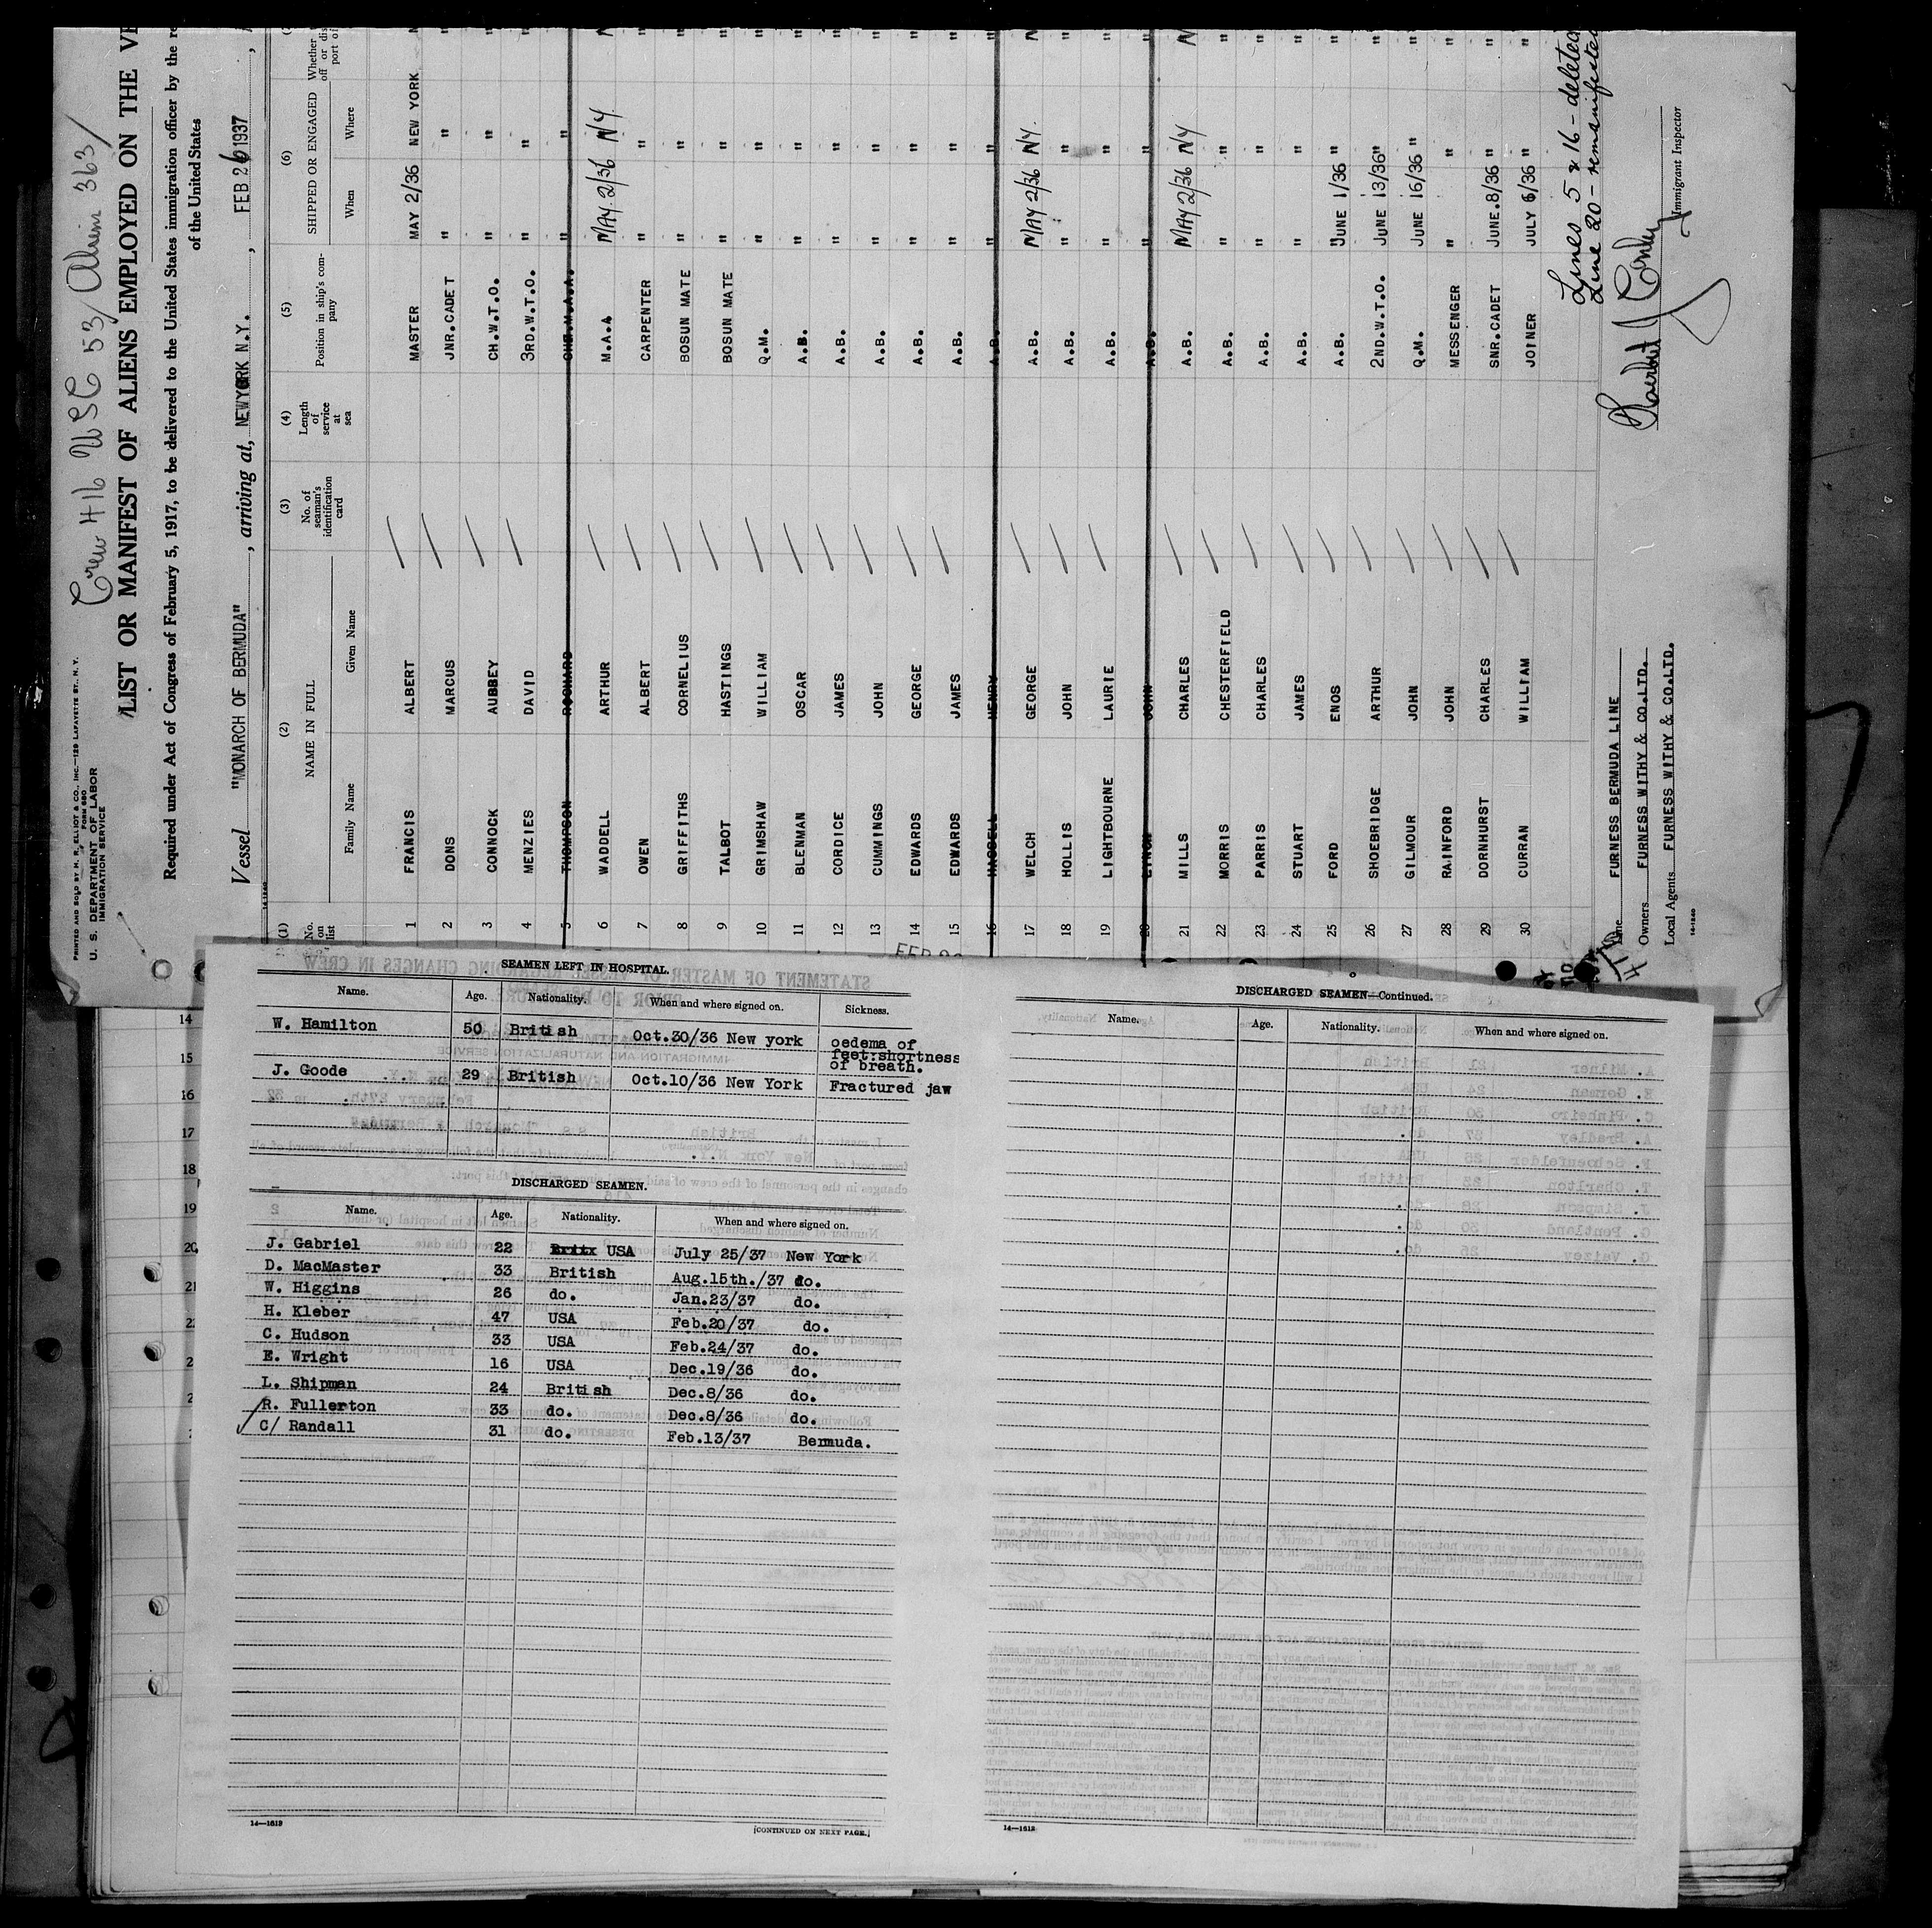 PRINTED AND SOLD BY H. R. ELLIOT & CO., INC.—129 LAFAYETTE ST., N. Y.
FORM 680
U. S. DEPARTMENT OF LABOR
IMMIGRATION SERVICE
Crew 416 USC 53/ Aliens 363/
LIST OR MANIFEST OF ALIENS EMPLOYED ON THE
Required under Act of Congress of February 5, 1917, to be delivered to the United States immigration officer by the
of the United States
Vessel "MONARCH OF BERMUDA", arriving at, NEWYORK N.Y., FEB 26 1937,
(1) (2) (3) (4) (5) (6)
No. on list NAME IN FULL No. of seaman's identification card Length of service at sea Position in ship's company SHIPPED OR ENGAGED Whether
Family Name Given Name When Where
1 FRANCIS ALBERT MASTER MAY 2/36 NEW YORK
2 DONS MARCUS JNR.CADET " " "
3 CONNOCK AUBBEY CH.W.T.O. " " "
4 MENZIES DAVID 3RD.W.T.O. " " "
5 THOMPSON ROCHARD CHF.M.A.A. " " "
6 WADDELL ARTHUR M.A.A MAY 2/36 NY.
7 OWEN ALBERT CARPENTER " " "
8 GRIFFITHS CORNELIUS BOSUN MATE " " "
9 TALBOT HASTINGS BOSUN MATE " " "
10 GRIMSHAW WILLIAM Q.M. " " "
11 BLENMAN OSCAR A.B. " " "
12 CORDICE JAMES A.B. " " "
13 CUMMINGS JOHN A.B. " " "
14 EDWARDS GEORGE A.B. " " "
15 EDWARDS JAMES A.B. " " "
16 HASSELL HENRY A.B. " " "
17 WELCH GEORGE A.B. MAY 2/36 NY.
18 HOLLIS JOHN A.B. " " "
19 LIGHTBOURNE LAURIE A.B. " " "
20 LYNCH JOHN A.B. " " "
21 MILLS CHARLES A.B. MAY 2/36 NY
22 MORRIS CHESTERFIELD A.B. " " "
23 PARRIS CHARLES A.B. " " "
24 STUART JAMES A.B. " " "
25 FORD ENOS A.B. JUNE 1/36 " "
26 SHOEBRIDGE ARTHUR 2ND.W.T.O. JUNE 13/36 " "
27 GILMOUR JOHN Q.M. JUNE 16/36 " "
28 RAINFORD JOHN MESSENGER " " "
29 DORNHURST CHARLES SNR.CADET JUNE.8/36 " "
30 CURRAN WILLIAM JOINER JULY 6/36 " "
Lines 5 & 16 - deleted
Line 20 - remanifested
Line FURNESS BERMUDA LINE
Owners FURNESS WITHY & CO.LTD.
Local Agents FURNESS WITHY & CO.LTD.
Immigrant Inspector
14-1240
SEAMEN LEFT IN HOSPITAL.
Name. Age. Nationality. When and where signed on. Sickness.
W. Hamilton 50 British Oct.30/36 New york oedema of
feet:shortness
of breath.
J. Goode 29 British Oct.10/36 New York Fractured jaw
DISCHARGED SEAMEN.
Name. Age. Nationality. When and where signed on.
J. Gabriel 22 USA July 25/37 New York
D. MacMaster 33 British Aug.15th./37 do.
W. Higgins 26 do. Jan.23/37 do.
H. Kleber 47 USA Feb.20/37 do.
C. Hudson 33 USA Feb.24/37 do.
E. Wright 16 USA Dec.19/36 do.
L. Shipman 24 British Dec.8/36 do.
R. Fullerton 33 do. Dec.8/36 do.
C/ Randall 31 do. Feb.13/37 Bermuda.
14—1613
[CONTINUED ON NEXT PAGE.]
DISCHARGED SEAMEN—Continued.
Name. Age. Nationality. When and where signed on.
14—1613
14
15
16
17
18
19
20
21